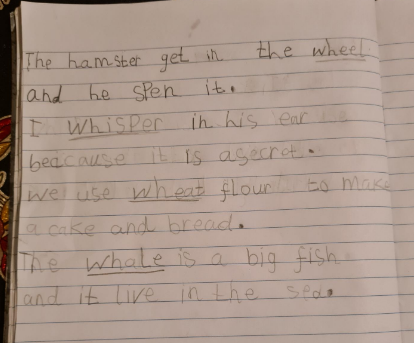 The hamster get in the wheel
and he spen it.
I whisper in his ear
beacause it is a secret.
we use wheat flour to make
a cake and bread.
The whale is a big fish
and it live in the sea.